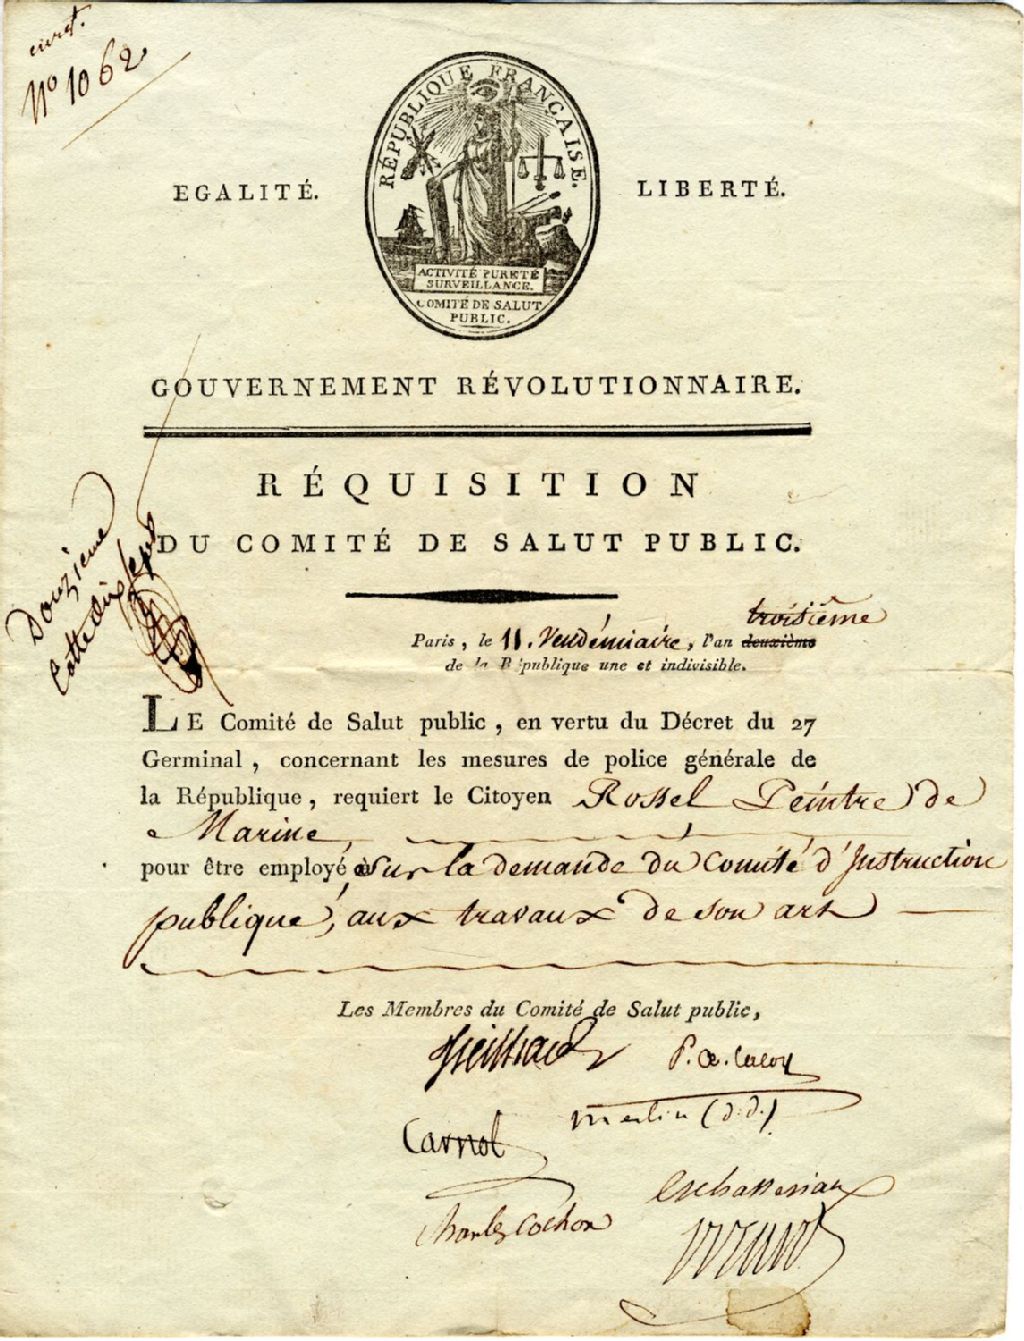 enreg.t
N.o 1062
RÉPUBLIQUE FRANCAISE.
EGALITÉ.
LIBERTÉ.
ACTIVITÉ PURETÉ
SURVEILLANCE.
COMITÉ DE SALUT
PUBLIC.
GOUVERNEMENT RÉVOLUTIONNAIRE.
RÉQUISITION
DU COMITÉ DE SALUT PUBLIC.
Douzieme
Cotte dix sept
troisième
Paris, le 11. Vendémiaire, l'an deuxième
de la République une et indivisible.
LE Comité de Salut public, en vertu du Décret du 27
Germinal, concernant les mesures de police générale de
la République, requiert le Citoyen Rossel Peintre de
Marine
pour être employé à Sur la demande du Comité d'Instruction
publique, aux travaux de son art
Les Membres du Comité de Salut public,
Treilhard
P. A. Laloy
Merlin (d. d.)
Carnot
Eschasseriaux
Charles Cochon